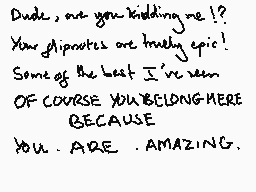 Dude, are you kidding me !?
Your flipnotes are trully epic!
Some of the best I've seen
OF COURSE YOU BELONG HERE
BECAUSE
YOU. ARE . AMAZING.